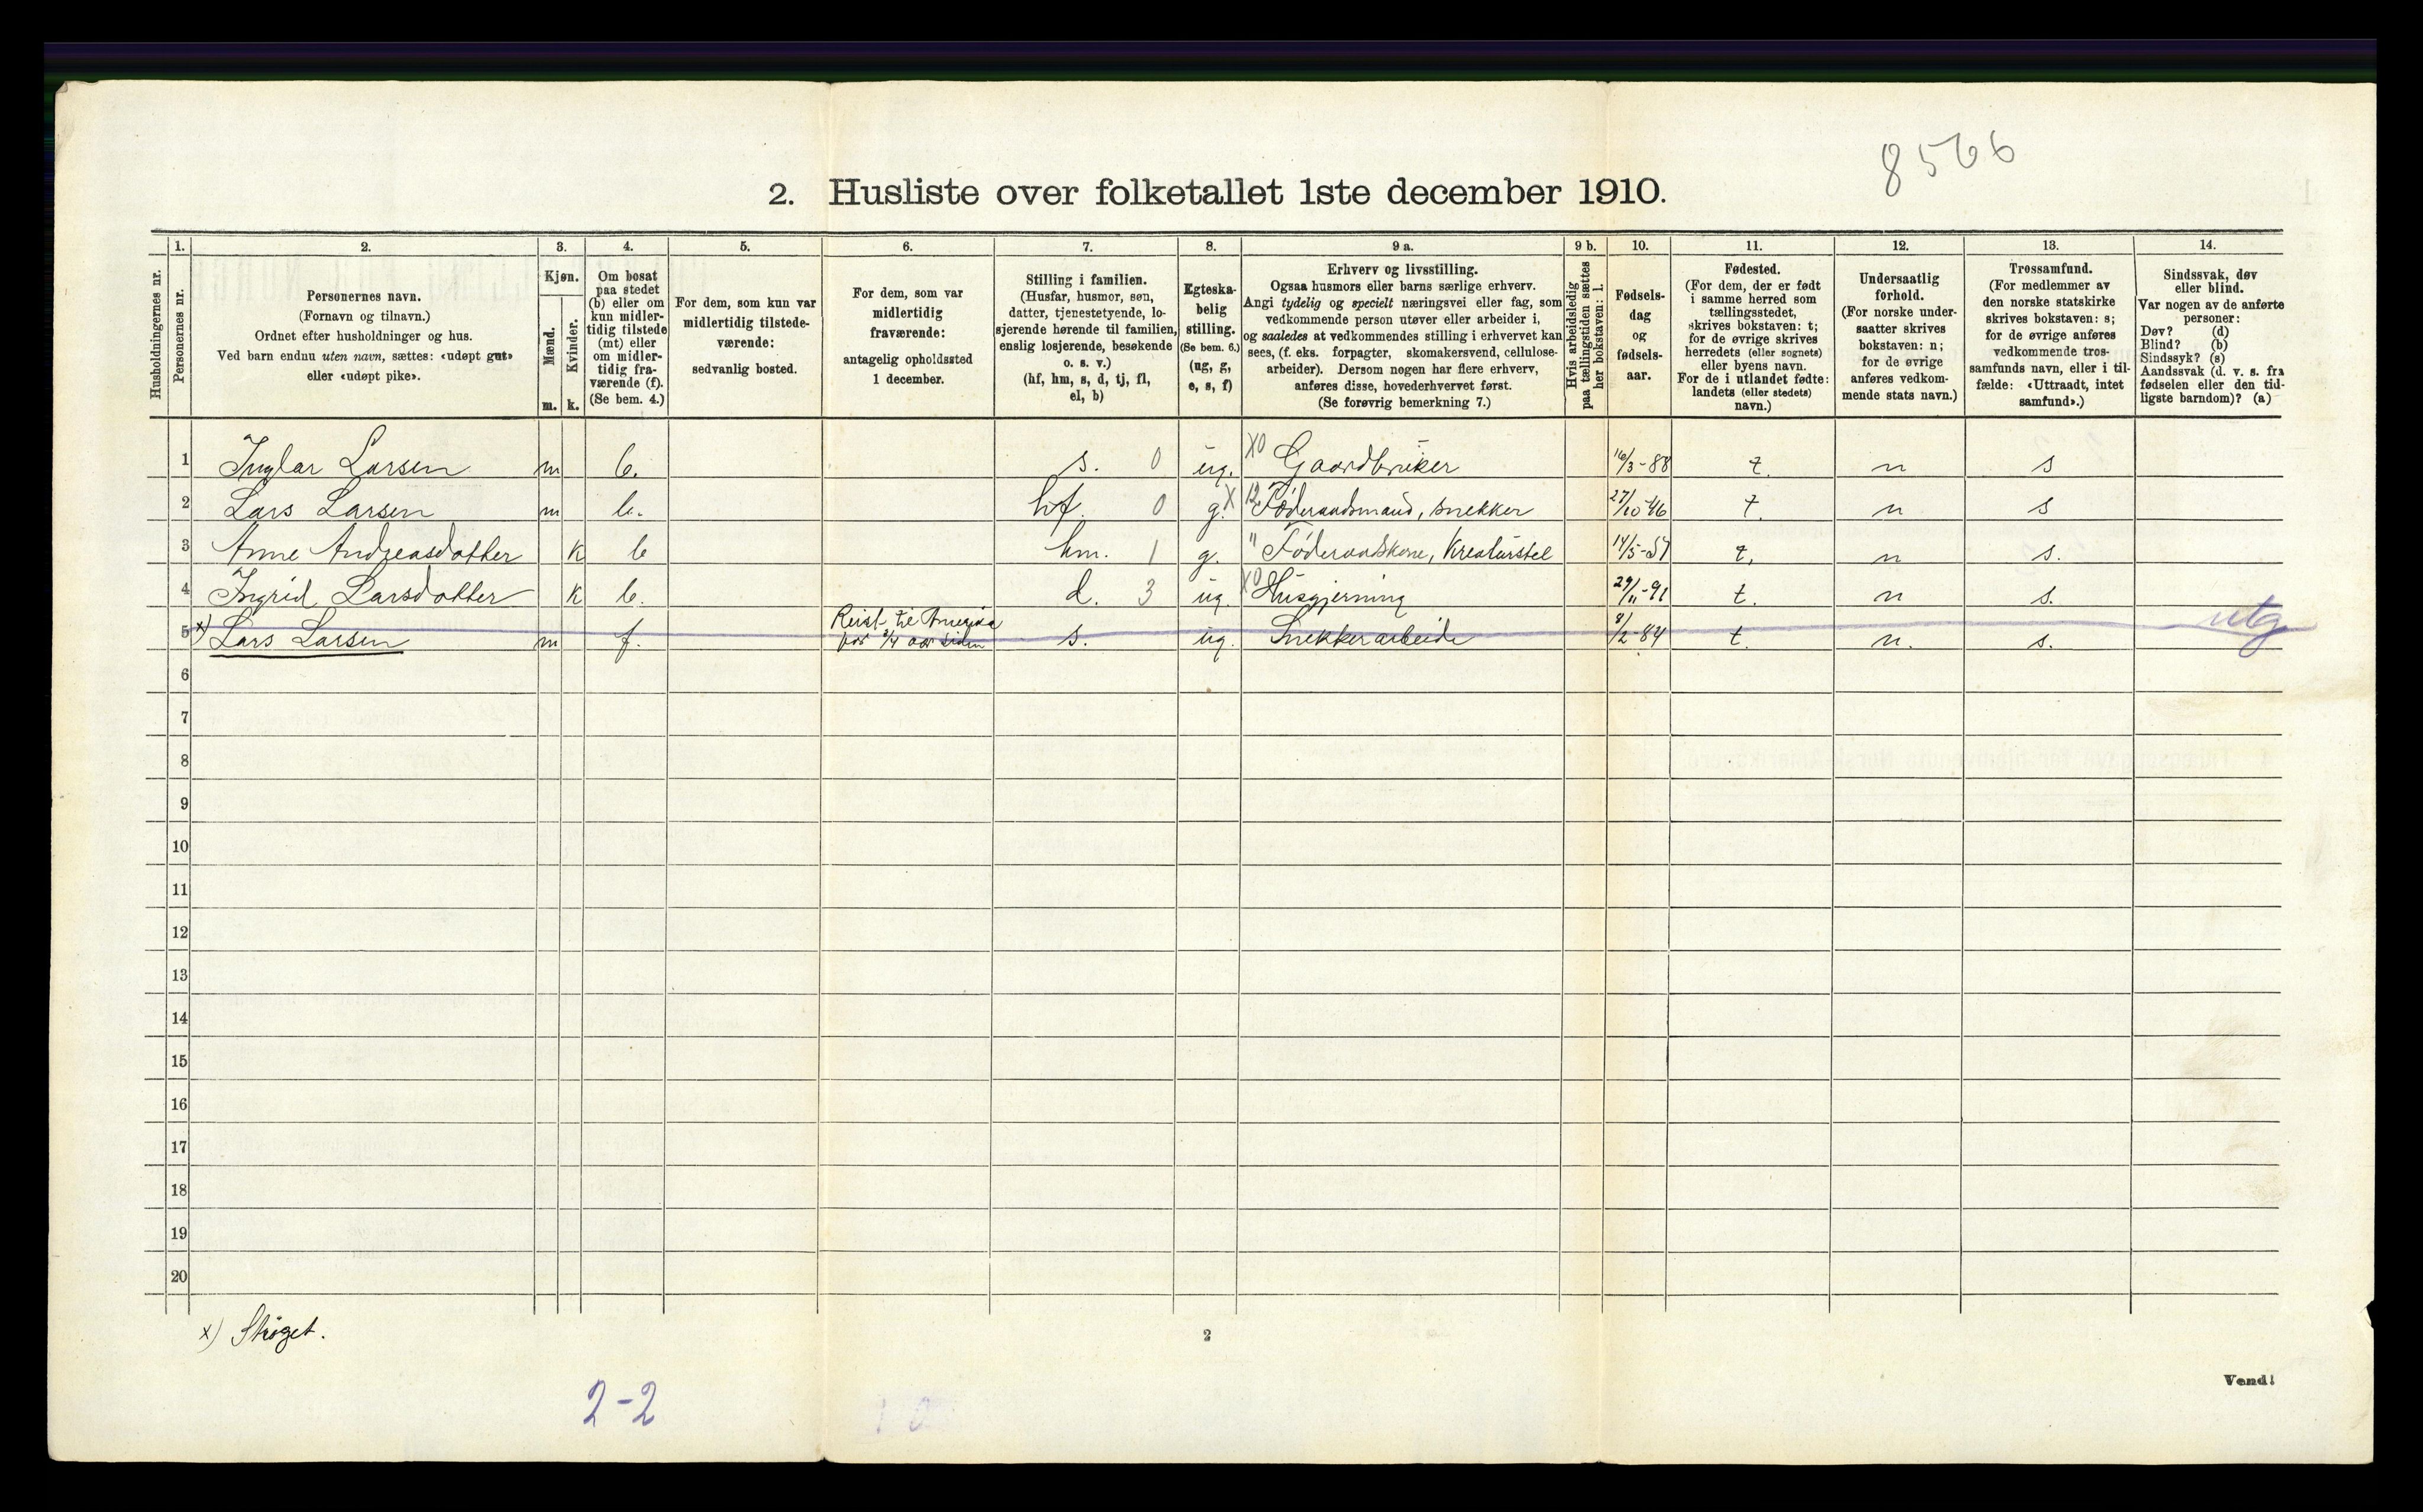 8566
2. Husliste over folketallet 1ste december 1910.
Husholdningernes nr.
1.
Personernes nr.
2.
Personernes navn.
(Fornavn og tilnavn.)
Ordnet efter husholdninger og hus.
Ved barn endnu uten navn, sættes: «udøpt gut»
eller «udøpt pike».
3.
Kjøn.
Mænd.
m.
Kvinder.
k.
4.
Om bosat
paa stedet
(b) eller om
kun midler-
tidig tilstede
(mt) eller
om midler-
tidig fra-
værende (f).
(Se bem. 4.)
5.
For dem, som kun var
midlertidig tilstede-
værende:
sedvanlig bosted.
6.
For dem, som var
midlertidig
fraværende:
antagelig opholdssted
1 december.
7.
Stilling i familien.
(Husfar, husmor, søn,
datter, tjenestetyende, lo-
sjerende hørende til familien,
enslig losjerende, besøkende
o. s. v.)
(hf, hm, s, d, tj, fl,
el, b)
8.
Egteska-
belig
stilling.
(Se bem. 6.)
(ug, g,
e, s, f)
9 a.
Erhverv og livsstilling.
Ogsaa husmors eller barns særlige erhverv.
Angi tydelig og specielt næringsvei eller fag, som
vedkommende person utøver eller arbeider i,
og saaledes at vedkommendes stilling i erhvervet kan
sees, (f. eks. forpagter, skomakersvend, cellulose-
arbeider). Dersom nogen har flere erhverv,
anføres disse, hovederhvervet først.
(Se forøvrig bemerkning 7.)
9 b.
Hvis arbeidsledig
paa tællingstiden sættes
her bokstaven: l.
10.
Fødsels-
dag
og
fødsels-
aar.
11.
Fødested.
(For dem, der er født
i samme herred som
tællingsstedet,
skrives bokstaven: t;
for de øvrige skrives
herredets (eller sognets)
eller byens navn.
For de i utlandet fødte:
landets (eller stedets)
navn.)
12.
Undersaatlig
forhold.
(For norske under-
saatter skrives
bokstaven: n;
for de øvrige
anføres vedkom-
mende stats navn.)
13.
Trossamfund.
(For medlemmer av
den norske statskirke
skrives bokstaven: s;
for de øvrige anføres
vedkommende tros-
samfunds navn, eller i til-
fælde: «Uttraadt, intet
samfund».)
14.
Sindssvak, døv
eller blind.
Var nogen av de anførte
personer:
Døv? (d)
Blind? (b)
Sindssyk? (s)
Aandssvak (d. v. s. fra
fødselen eller den tid-
ligste barndom)? (a)
1 Inglar Larsen m b. s. 0 ug. X0 Gaardbruker 16/3-88 t. n s
2 Lars Larsen m b. hf. 0 g. X 12 Føderaadsmand, snekker 27/10-46 t. n s
3 Anne Andreasdotter k b hm. 1 g. " Føderaadskone, Kreaturstel 14/5-57 t, n s.
4 Ingrid Larsdotter k b. d. 3 ug. X0 Husgjerning 29/11-91 t. n s.
5 x) Lars Larsen m f. Reist til Amerika
for 3/4 aar siden s. ug. Snekkerarbeide 8/2-84 t. n. s. utg
6
7
8
9
10
11
12
13
14
15
16
17
18
19
20
x) Strøget.
2
Vend!
2-2